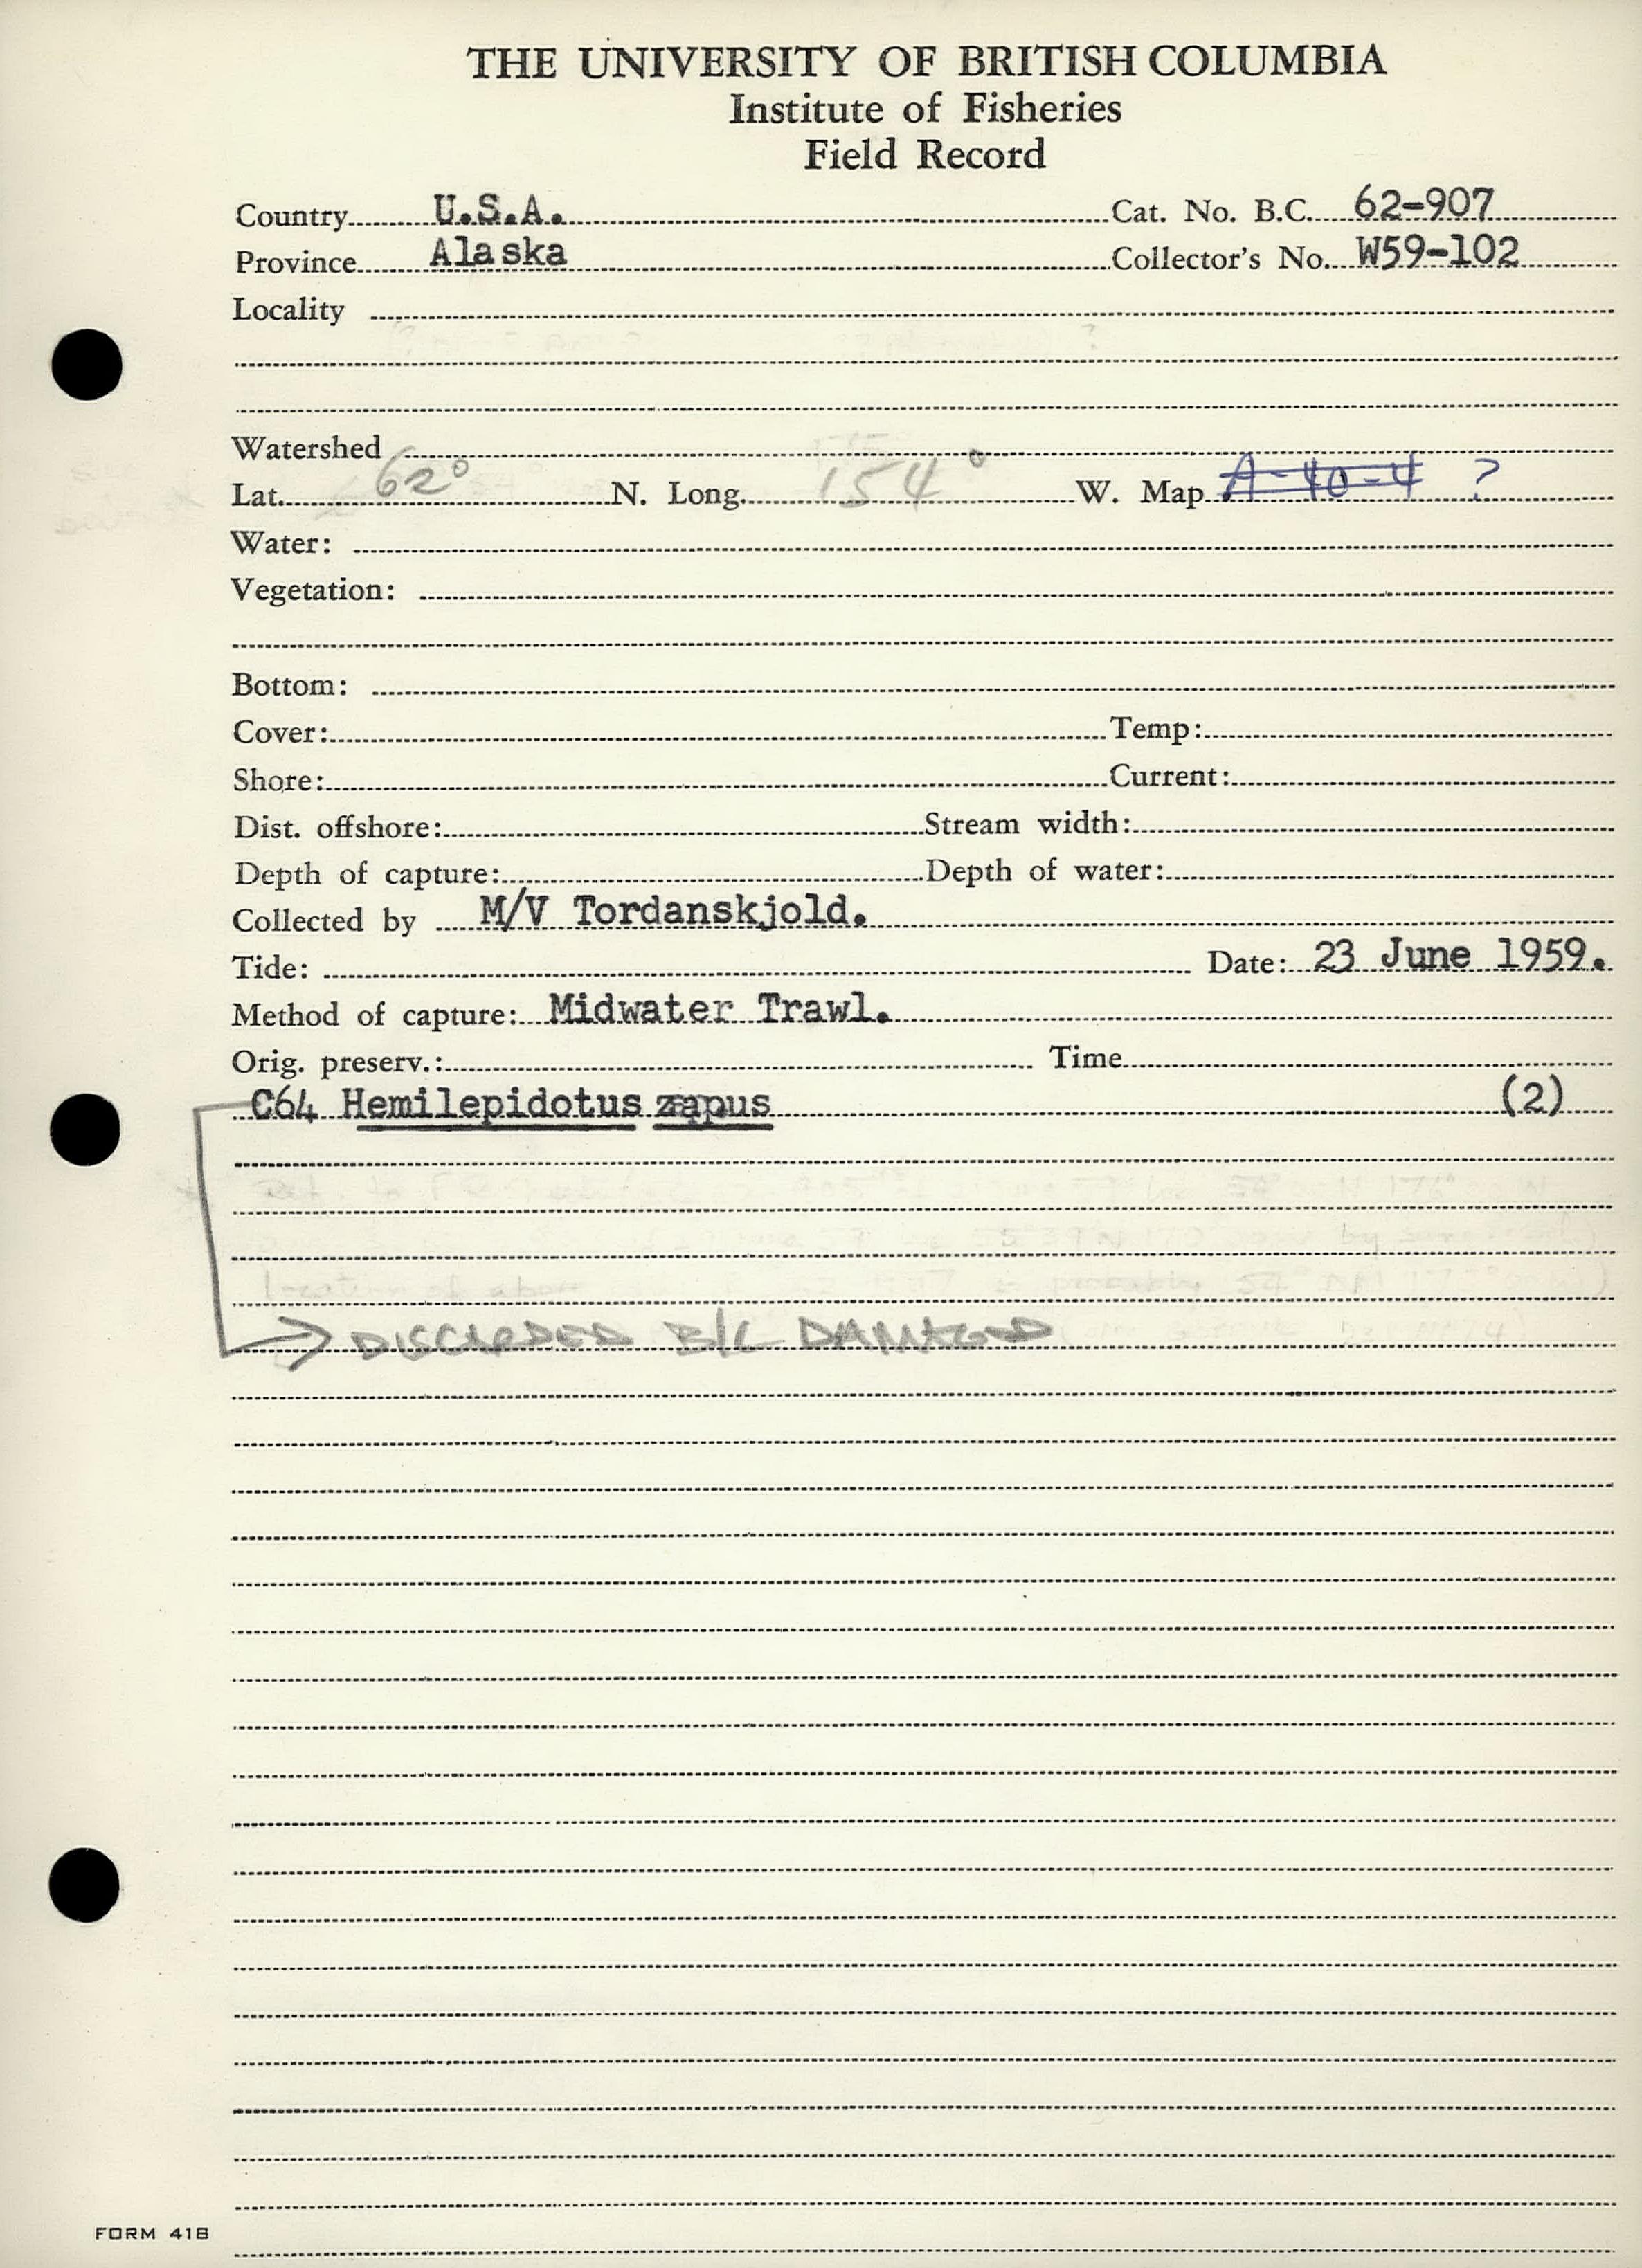 THE UNIVERSITY OF BRITISH COLUMBIA
Institute of Fisheries
Field Record
Country U.S.A. Cat. No. B.C. 62-907
Province Alaska Collector's No. W59-102
Locality
Watershed
Lat. 62° N. Long. 154° W. Map A-40-4 ?
Water:
Vegetation:
Bottom:
Cover: Temp:
Shore: Current:
Dist. offshore: Stream width:
Depth of capture: Depth of water:
Collected by M/V Tordanskjold.
Tide: Date: 23 June 1959.
Method of capture: Midwater Trawl.
Orig. preserv.: Time
C64 Hemilepidotus zapus (2)
→ DISCARDED B/C DAMAGED
FORM 41B